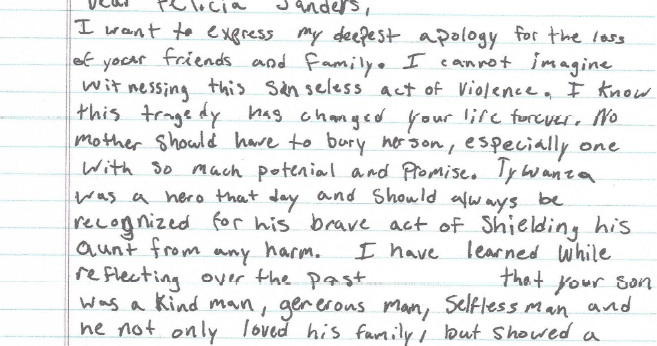 Dear Felicia Sanders,
I want to express my deepest apology for the loss
of your friends and family. I cannot imagine
witnessing this senseless act of violence. I know
this tragedy has changed your life forever. No
mother should have to bury her son, especially one
with so much potenial and Promise. Tywanza
was a hero that day and should always be
recognized for his brave act of Shielding his
aunt from any harm. I have learned while
reflecting over the past that your son
was a kind man, generous man, Selfless man and
he not only loved his family, but showed a